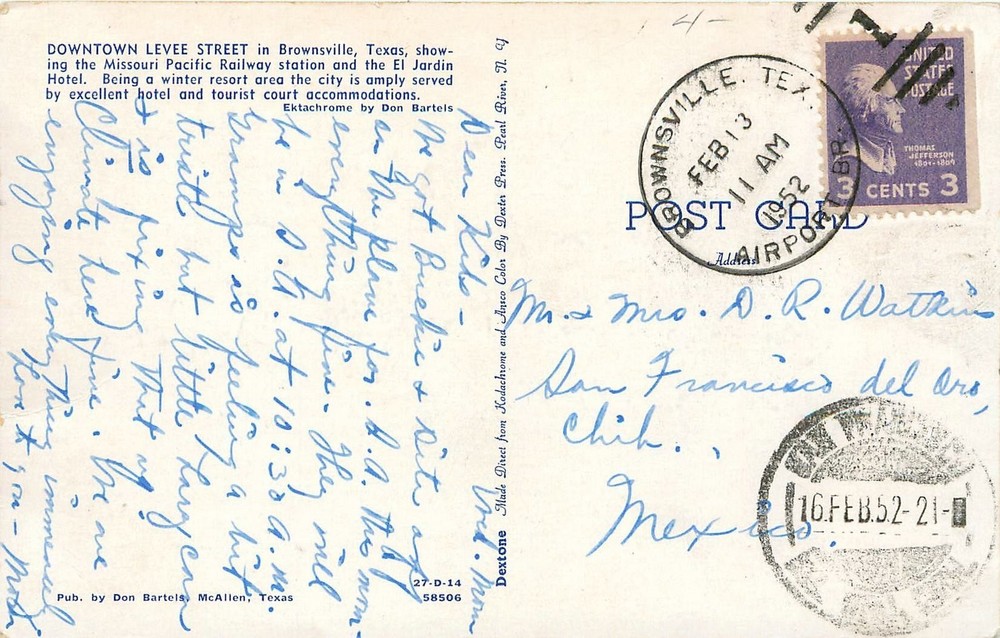 DOWNTOWN LEVEE STREET in Brownsville, Texas, show-
ing the Missouri Pacific Railway station and the El Jardin
Hotel. Being a winter resort area the city is amply served
by excellent hotel and tourist court accommodations.
Ektachrome by Don Bartels
Wed. Morn
Dear Kids –
We got Buckie & off
on the plane for S.A. this morn-
everything fine. They will
be in S.A. at 10:30 a.m.
Gramps is feeling a bit
but little Larry can
& is fixing that up.
Climate here fine. We are
enjoying everything immensely
Love to you –
27-D-14
Pub. by Don Bartels, McAllen, Texas
58506
Dextone Made Direct from Kodachrome and Ansco Color By Dexter Press, Pearl River, N. Y.
4-
BROWNSVILLE. TEX.
FEB 13
11 AM
1952
AIRPORT BR.
UNITED
STATES
POSTAGE
THOMAS
JEFFERSON
1801-1809
3 CENTS 3
POST CARD
Address
Mr. & Mrs. D. R. Watkins
San Francisco del Oro,
Chih.,
Mexico.
16.FEB.52-21-